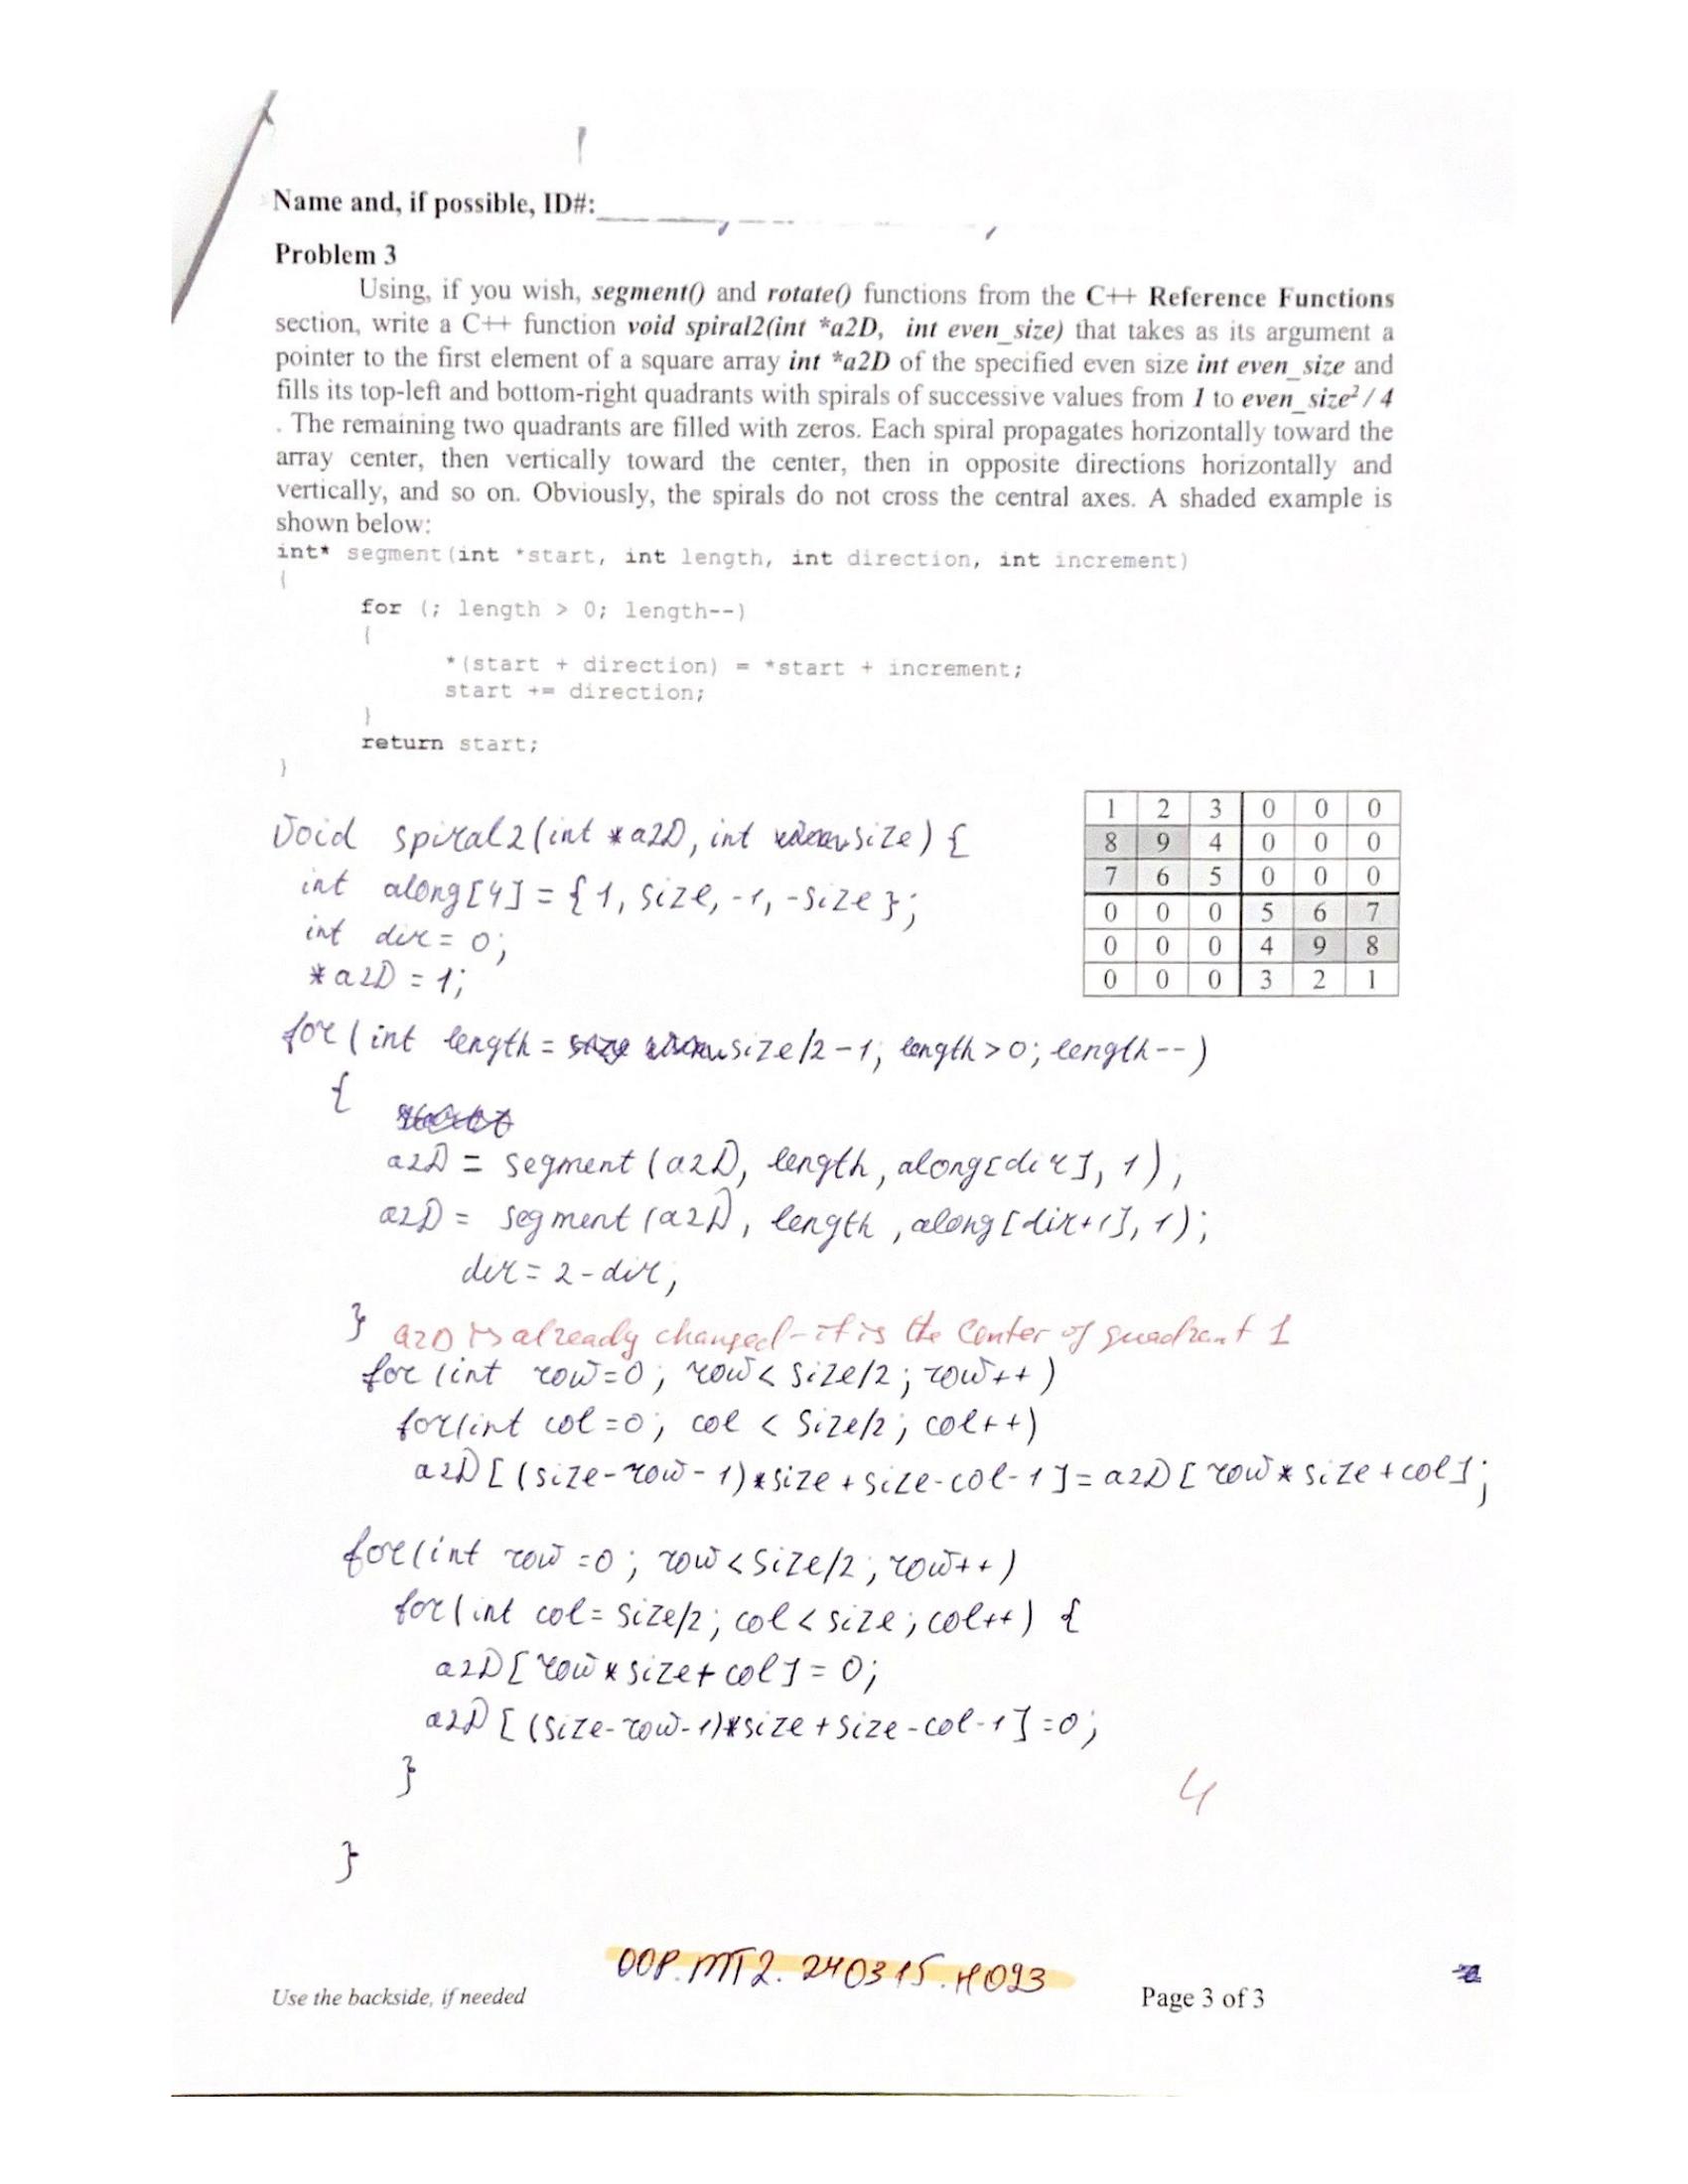 Name and, if possible, ID#:
Problem 3
Using, if you wish, segment() and rotate() functions from the C++ Reference Functions
section, write a C++ function void spiral2(int *a2D, int even_size) that takes as its argument a
pointer to the first element of a square array int *a2D of the specified even size int even_size and
fills its top-left and bottom-right quadrants with spirals of successive values from 1 to even_size²/ 4
. The remaining two quadrants are filled with zeros. Each spiral propagates horizontally toward the
array center, then vertically toward the center, then in opposite directions horizontally and
vertically, and so on. Obviously, the spirals do not cross the central axes. A shaded example is
shown below:
int* segment(int *start, int length, int direction, int increment)
{
for (; length > 0; length--)
{
*(start + direction) = *start + increment;
start += direction;
}
return start;
}
1 2 3 0 0 0
8 9 4 0 0 0
7 6 5 0 0 0
0 0 0 5 6 7
0 0 0 4 9 8
0 0 0 3 2 1
void spiral2(int *a2D, int size) {
int along[4] = {1, size, -1, -size};
int dir = 0;
*a2D = 1;
for (int length = size/2-1; length>0; length--)
{
a2D = segment(a2D, length, along[dir], 1);
a2D = segment(a2D, length, along[dir+1], 1);
dir = 2-dir;
} a2D is already changed - it is the Center of quadrant 1
for (int row=0; row < size/2; row++)
for(int col=0; col < size/2; col++)
a2D[(size-row-1)*size+size-col-1]=a2D[row*size+col];
for(int row=0; row<size/2; row++)
for(int col=size/2; col<size; col++) {
a2D[row*size+col]=0;
a2D[(size-row-1)*size+size-col-1]=0;
}
4
}
OOP.MT2.240315.H093
Use the backside, if needed
Page 3 of 3